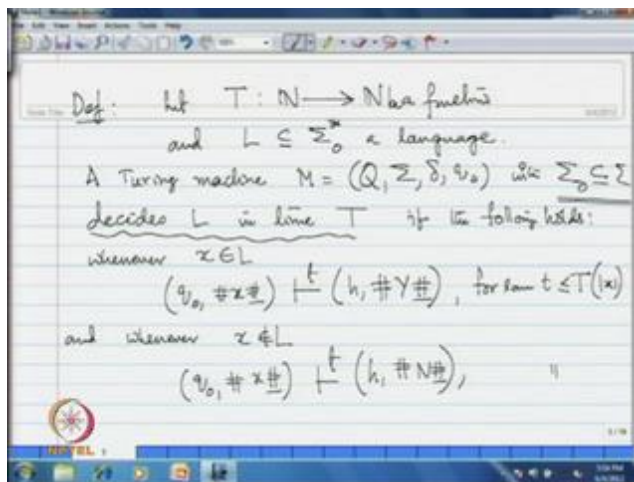 Def: Let T : ℕ → ℕ be a function
and L ⊆ Σ₀* a language.
A Turing machine M = (Q, Σ, δ, q₀) with Σ₀ ⊆ Σ
decides L in time T if the following holds:
whenever x ∈ L
(q₀, #x#) ⊢ᵗ (h, #Y#), for some t ≤ T(|x|)
and whenever x ∉ L
(q₀, #x#) ⊢ᵗ (h, #N#), "
NPTEL